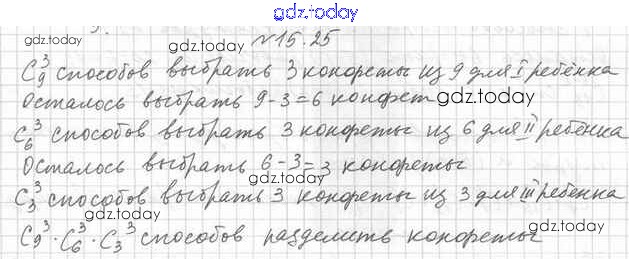 gdz.today
gdz.today gdz.today №15.25
C₉³ способов выбрать 3 конфеты из 9 для I ребёнка
Осталось выбрать 9-3=6 конфет gdz.today
C₆³ способов выбрать 3 конфеты из 6 для II ребёнка
Осталось выбрать 6-3=3 конфеты
gdz.today
C₃³ способов выбрать 3 конфеты из 3 для III ребенка
gdz.today gdz.today
C₉³·C₆³·C₃³ способов разделить конфеты